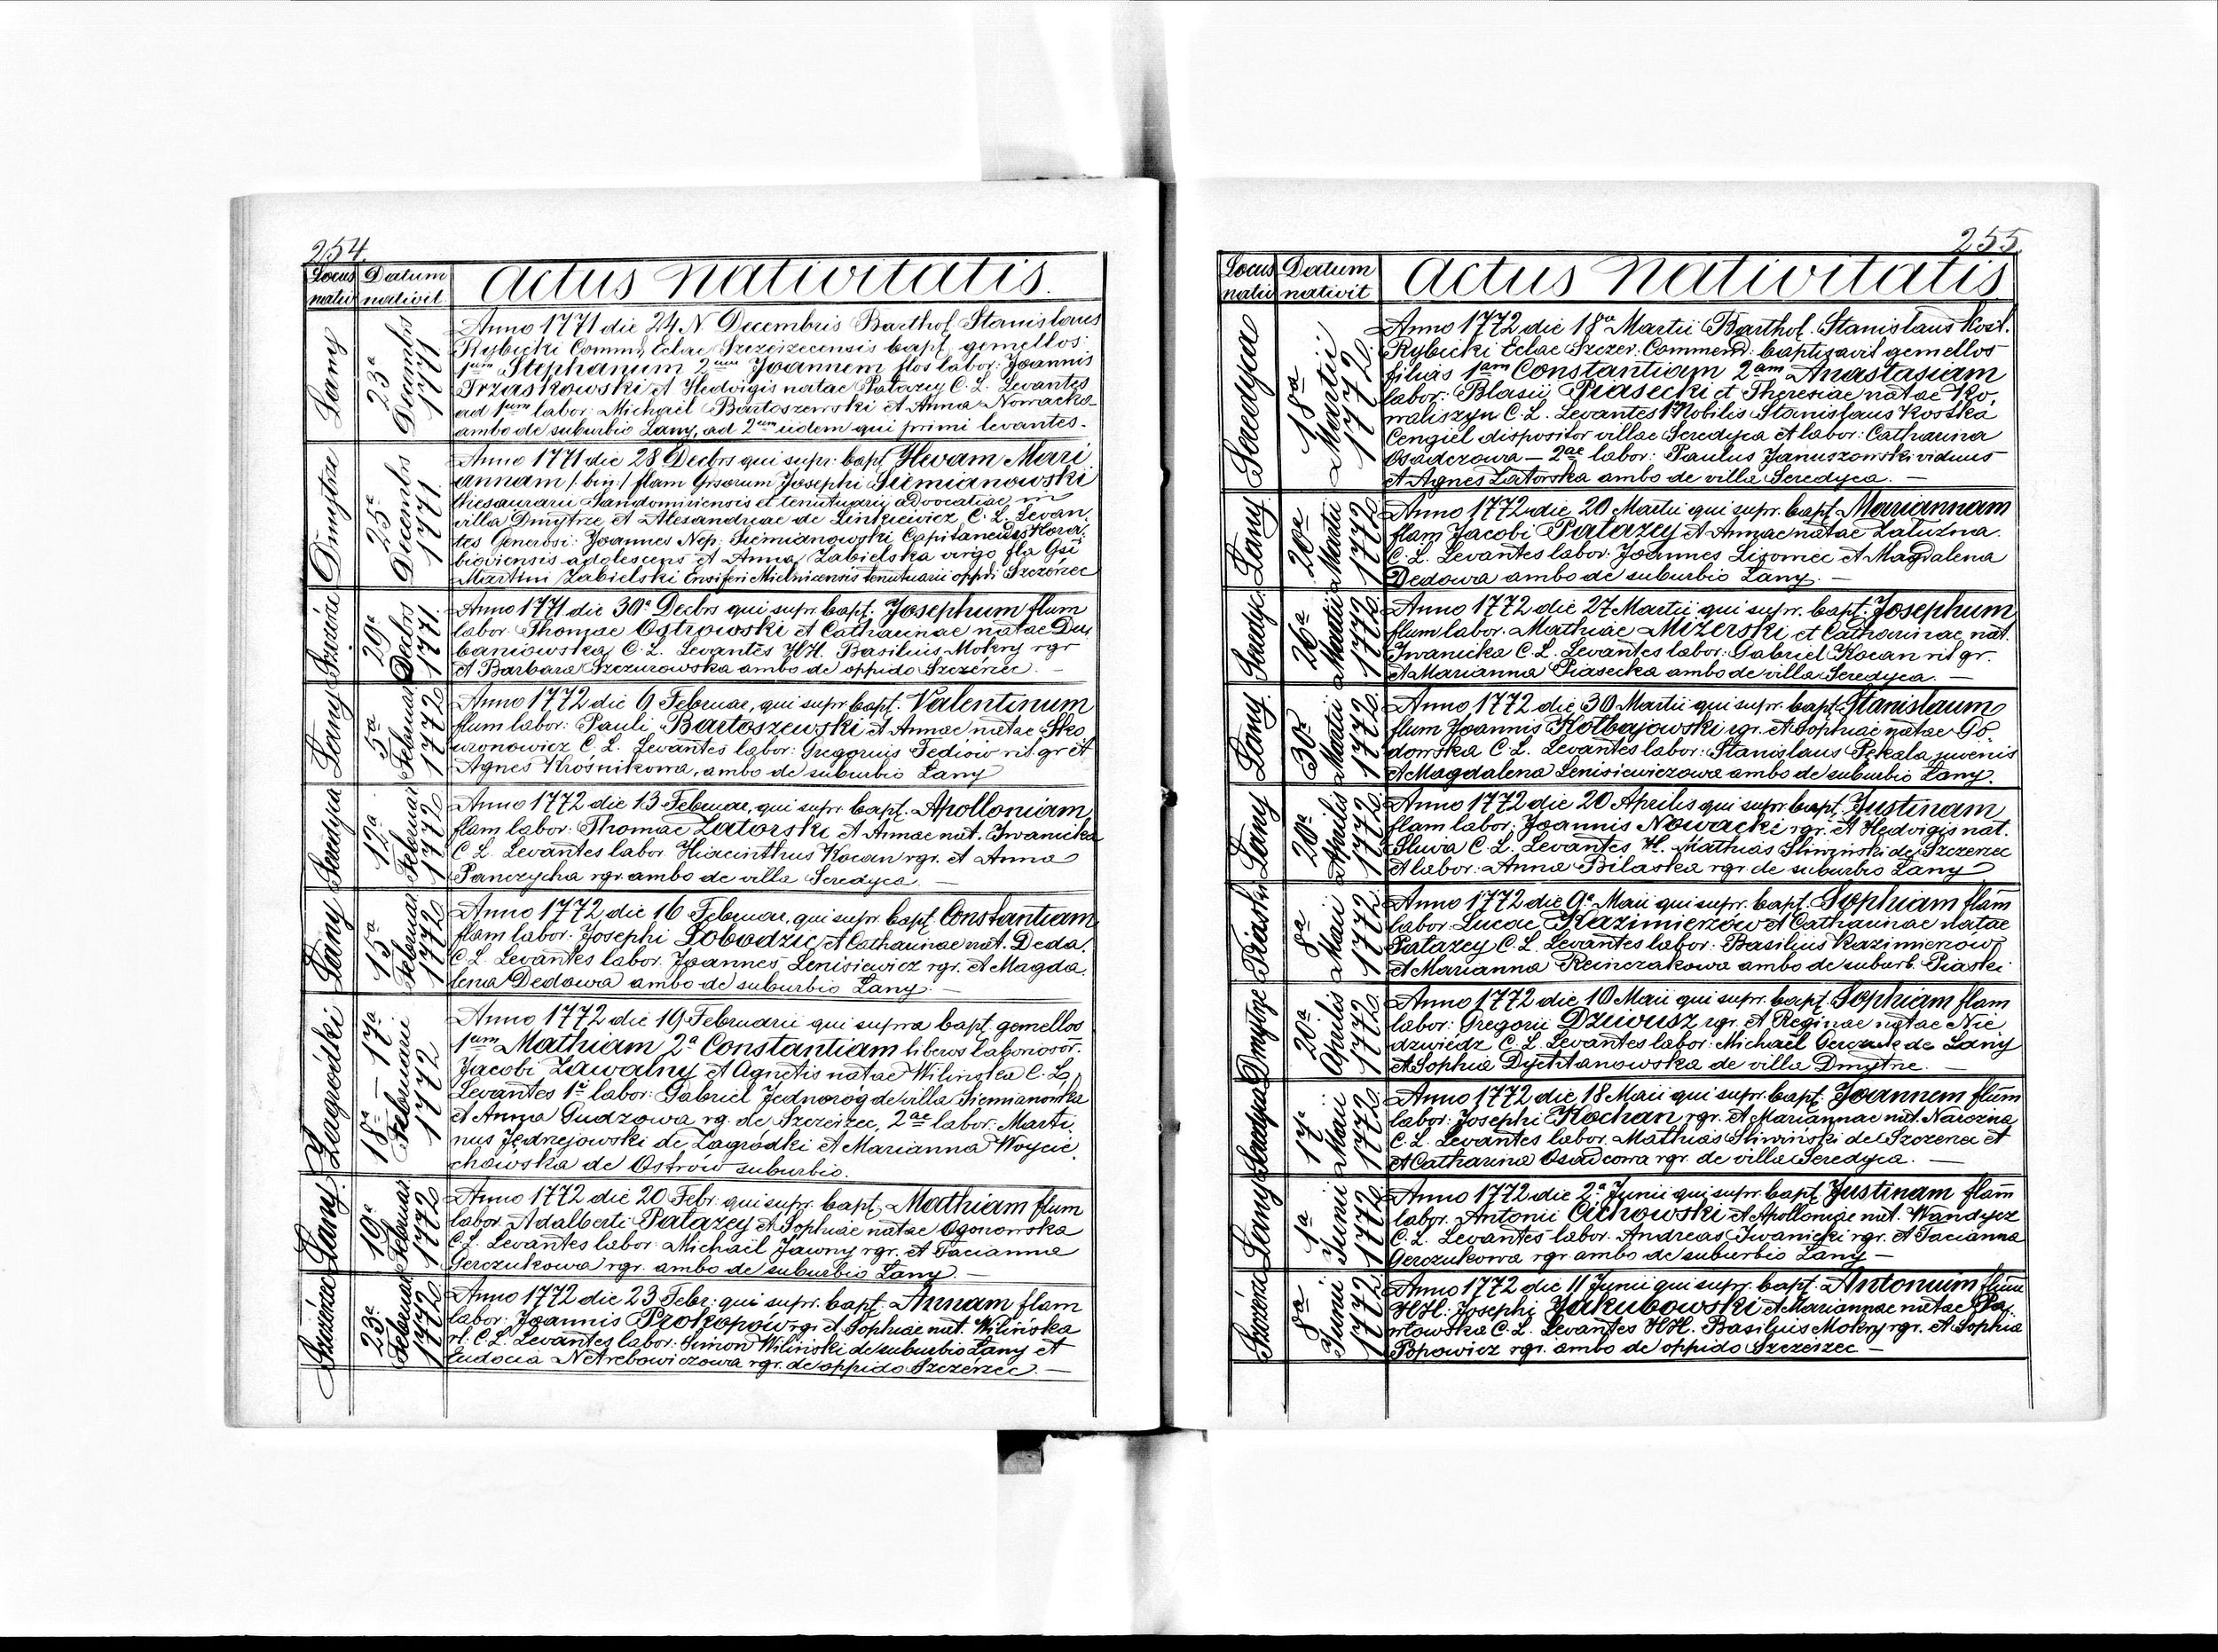 254.
Locus nativ
Datum nativit
Actus Nativitatis.
Łany
23a Decembris 1771
Anno 1771 die 24 N. Decembris Barthol. Stanislaus
Rybicki Commend Eclae Szczeizecensis bapt. gemellos:
1um Stephanum 2um Joannem flos labor: Joannis
Trzaskowski et Hedvigis natae Patazey C. L. Levantes
ad 1um labor: Michael Bartoszewski et Anna Nowacka
ambo de suburbio Łany, ad 2um iidem qui primi levantes.
Dmytrze
25a Decembris 1771.
Anno 1771 die 28 Decbrs qui supr: bapt. Hevam Mari
annam /:bin:/ flam Grsorum Josephi Siemianowski
thesaurarii Sandomiriensis et tenutuarii advocatiae in
villa Dmytrze et Alexandrae de Linkiewicz C. L. Levan
tes Generosi: Joannes Nep: Siemianowski Capitaneus
adolescens et Anna Zabielska virgo fla Gsi
Martini Zabielski Ensiferi Mielnicensis tenutuarii oppdi Szczérzec
Szczérzéc
29a Decbrs 1771.
Anno 1771 die 30a Decbrs qui supr. bapt. Josephum flum
labor. Thomae Ostrowski et Catharinae natae Du
baniowska C. L. Levantes HH. Basilius Mokry rgr
et Barbara Szczurowska ambo de oppido Szczérzec. —
Łany
5a Februar 1772
Anno 1772 die 6 Februar, qui supr. bapt. Valentinum
flum labor: Pauli Bartoszewski et Annae natae Sko
wronowicz C. L. Levantes labor: Gregorius Fediów rit. gr et
Agnes Krośnikowa, ambo de suburbio Łany
Seredyca
12a Februar 1772
Anno 1772 die 13 Februar, qui supr. bapt. Apolloniam
flam labor: Thomae Zatorski et Annae nat. Iwanicka
C. L. Levantes labor Hiacinthus Kocan rgr. et Anna
Panczycha rgr. ambo de villa Seredyca —
Łany
15a Februar 1772
Anno 1772 die 16 Februar, qui supr. bapt. Constantiam
flam labor. Josephi Łobodzic et Catharinae nat. Deda.
C. L. Levantes labor. Joannes Lenisiewicz rgr. et Magda
lena Dedowa ambo de suburbio Łany. —
Zagródki
18a — 17a Februarii 1772
Anno 1772 die 19 Februarii qui supra bapt. gemellos
1um Mathiam 2a Constantiam liberos laboriosor:
Jacobi Zawalny et Agnetis natae Wilinska C. L.
Levantes 1i labor: Gabriel Jednoróg de villa Siemianowka
et Anna Gudzowa rg. de Szczeizec, 2ae labor: Marti
nus Jędrzejowski de Zagródki et Marianna Woycie
chowska de Ostrów suburbio.
Łany
19a Februar 1772
Anno 1772 die 20 Febr: qui supr. bapt. Mathiam flum
labor. Adalberti Patazey et Sophiae natae Ogonowska
C. L. Levantes labor: Michaël Jawny rgr. et Tacianna
Gerczukowa rgr. ambo de suburbio Łany. —
Szczérzéc
23a Februar 1772
Anno 1772 die 23 Febr: qui supr. bapt. Annam flam
labor: Joannis Prokopów rgr. et Sophiae nat. Wilińska
rl. C. L. Levantes labor: Simon Wiliński de suburbio Łany et
Eudocia Netrebowiczowa rgr. de oppido Szczérzéc. —
255.
Locus nativ
Datum nativit
Actus Nativitatis
Seredyca
18a Martii 1772
Anno 1772 die 18a Martii Barthol. Stanislaus Kost.
Rybicki Eclae Szczer. Commend: baptisavit gemellos
filias 1am Constantiam 2am Anastasiam
labor: Blasii Piasecki et Theresiae natae Ko
waliszyn C. L. Levantes 1 Nobilis Stanislaus Kostka
Cengiel dispositor villae Seredyca et labor: Catharina
Osadczowa — 2ae labor: Paulus Januszowski viduus
et Agnes Zatorska ambo de villa Seredyca. —
Łany
20a Martii 1772
Anno 1772 die 20 Martii qui supr. bapt. Mariannam
flam Jacobi Patazey et Annae natae Załuzna.
C. L. Levantes labor: Joannes Lizoniec et Magdalena
Dedowa ambo de suburbio Łany. —
Seredyc.
26a Martii 1772
Anno 1772 die 27 Martii qui supr. bapt. Josephum
flum labor. Mathiae Mizerski et Catharinae nat.
Iwanicka C. L. Levantes labor: Gabriel Kocan rit gr.
et Marianna Piasecka ambo de villa Seredyca. —
Łany
30a Martii 1772
Anno 1772 die 30 Martii qui supr. bapt. Stanislaum
flum Joannis Hołbajowski rgr. et Sophiae natae Go
dowska C. L. Levantes labor: Stanislaus Pękala juvenis
et Magdalena Lenisiewiczowa ambo de suburbio Łany.
Łany
20a Aprilis 1772
Anno 1772 die 20 Aprilis qui supr. bapt. Justinam
flam labor: Joannis Nowacki rgr. et Hedvigis nat.
Śliwa C. L. Levantes H. Mathias Śliwiński de Szczerzec
et labor: Anna Bilaska rgr. de suburbio Łany
Piaski
8a Maii 1772
Anno 1772 die 9a Maii qui supr. bapt. Sophiam flam
labor Lucae Kazimierzów et Catharinae natae
Patazey C. L. Levantes labor: Basilius Kazimierzow
et Marianna Reinczakowa ambo de suburb. Piaski
Dmytrze
20a Aprilis 1772
Anno 1772 die 10 Maii qui supr. bapt. Sophiam flam
labor: Gregorii Dziwusz rgr. et Reginae natae Nie
dzwiedz C. L. Levantes labor: Michaël Gerczuk de Łany
et Sophia Dychtanowska de villa Dmytrze. —
Seredyca
17a Maii 1772
Anno 1772 die 18 Maii qui supr. bapt. Joannem flum
labor: Josephi Kochan rgr. et Mariannae nat. Naiozna
C. L. Levantes labor. Mathias Śliwiński de Szczerzec et
et Catharina Osadcowa rgr. de villa Seredyca. —
Łany
1a Junii 1772
Anno 1772 die 2a Junii qui supr. bapt. Justinam flam
labor. Antonii Cichowski et Apolloniae nat. Wandycz
C. L. Levantes labor. Andreas Iwanicki rgr. et Tacianna
Gerczukowa rgr ambo de suburbio Łany —
Szczérzéc
8a Junii 1772
Anno 1772 die 11 Junii qui supr. bapt. Antonium flum
HH: Josephi Jakubowski et Mariannae natae Pa
włowska C. L. Levantes HH. Basilius Mokry rgr. et Sophia
Popowicz rgr. ambo de oppido Szczeizec —